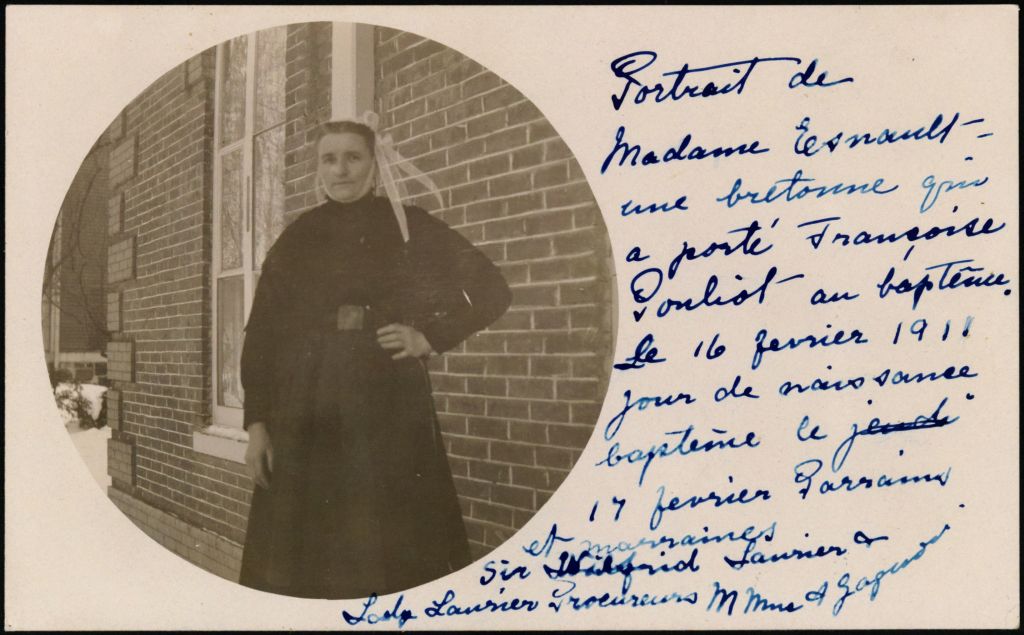 Portrait de
Madame Esnault -
une bretonne qui
a porté Françoise
Pouliot au baptême.
Le 16 fevrier 1911
jour de naissance
baptême le jeudi
17 fevrier Parrains
et marraines
Sir Wilfrid Laurier &
Lady Laurier Procureurs M Mme A Gagnon